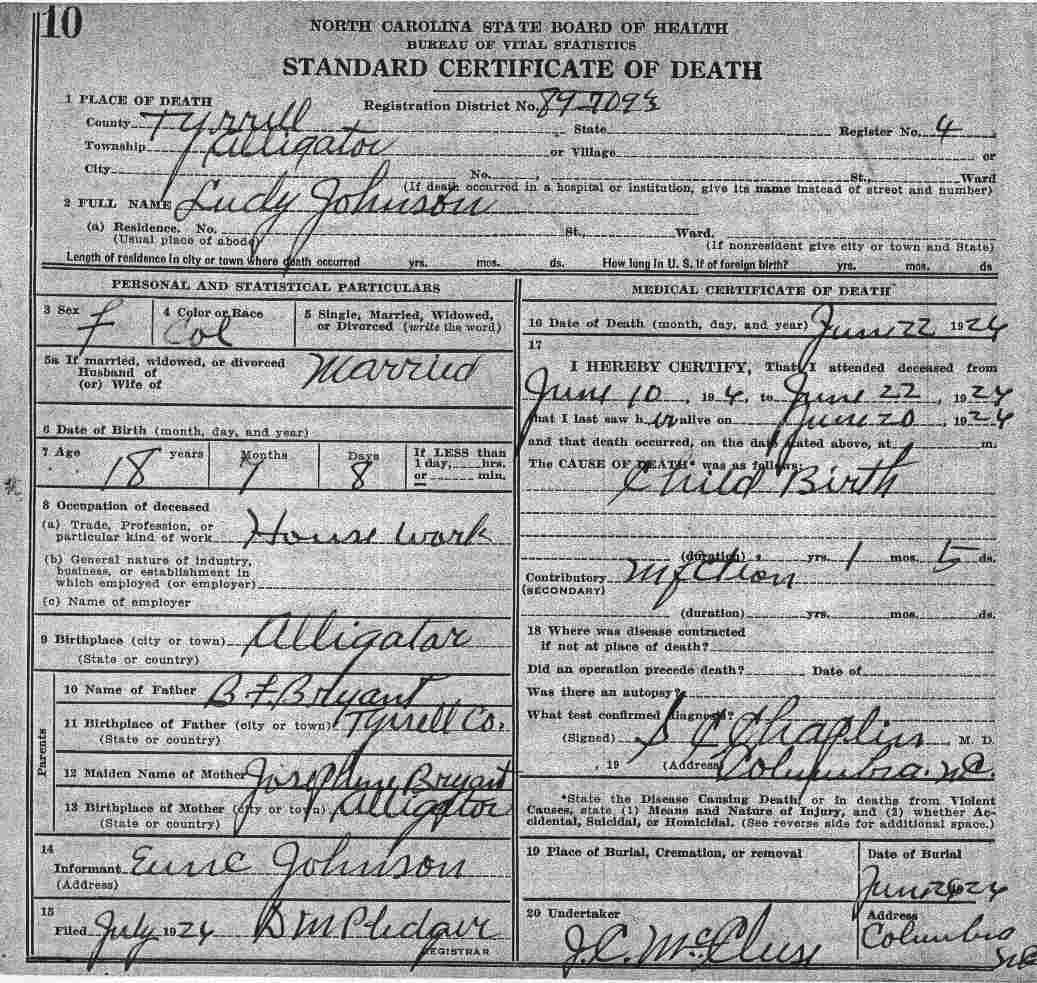 10
NORTH CAROLINA STATE BOARD OF HEALTH
BUREAU OF VITAL STATISTICS
STANDARD CERTIFICATE OF DEATH
1 PLACE OF DEATH Registration District No. 89-7093
County Tyrrell State Register No. 4
Township Alligator or Village or
City No. , St., Ward
(If death occurred in a hospital or institution, give its name instead of street and number)
2 FULL NAME Ludy Johnson
(a) Residence. No. St., Ward.
(Usual place of abode) (If nonresident give city or town and State)
Length of residence in city or town where death occurred yrs. mos. ds. How long in U. S. if of foreign birth? yrs. mos. ds
PERSONAL AND STATISTICAL PARTICULARS
3 Sex f 4 Color or Race Col 5 Single, Married, Widowed,
or Divorced (write the word)
Married
5a If married, widowed, or divorced
Husband of
(or) Wife of
6 Date of Birth (month, day, and year)
7 Age 18 years 7 Months 8 Days If LESS than
1 day, hrs.
or min.
8 Occupation of deceased
(a) Trade, Profession, or
particular kind of work House work
(b) General nature of industry,
business, or establishment in
which employed (or employer)
(c) Name of employer
9 Birthplace (city or town) Alligator
(State or country)
Parents
10 Name of Father B F Bryant
11 Birthplace of Father (city or town) Tyrrell Co.
(State or country)
12 Maiden Name of Mother Josephine Bryant
13 Birthplace of Mother (city or town) Alligator
(State or country)
14
Informant Johnson
(Address)
15
Filed July 1924 B M Pledger
REGISTRAR
MEDICAL CERTIFICATE OF DEATH
16 Date of Death (month, day, and year) June 22 1924
17
I HEREBY CERTIFY, That I attended deceased from
June 10, 194, to June 22, 1924
that I last saw her alive on June 20, 1924
and that death occurred, on the date stated above, at m.
The CAUSE OF DEATH* was as follows:
Child Birth
(duration) yrs. 1 mos. 5 ds.
Contributory Infection
(SECONDARY)
(duration) yrs. mos. ds.
18 Where was disease contracted
if not at place of death?
Did an operation precede death? Date of
Was there an autopsy?
What test confirmed diagnosis?
(Signed) S C Chaplin, M. D.
, 19 (Address) Columbia. N.C.
*State the Disease Causing Death, or in deaths from Violent
Causes, state (1) Means and Nature of Injury, and (2) whether Ac-
cidental, Suicidal, or Homicidal. (See reverse side for additional space.)
19 Place of Burial, Cremation, or removal Date of Burial
June 24
20 Undertaker Address
J.C. McCluse Columbia
N.C.